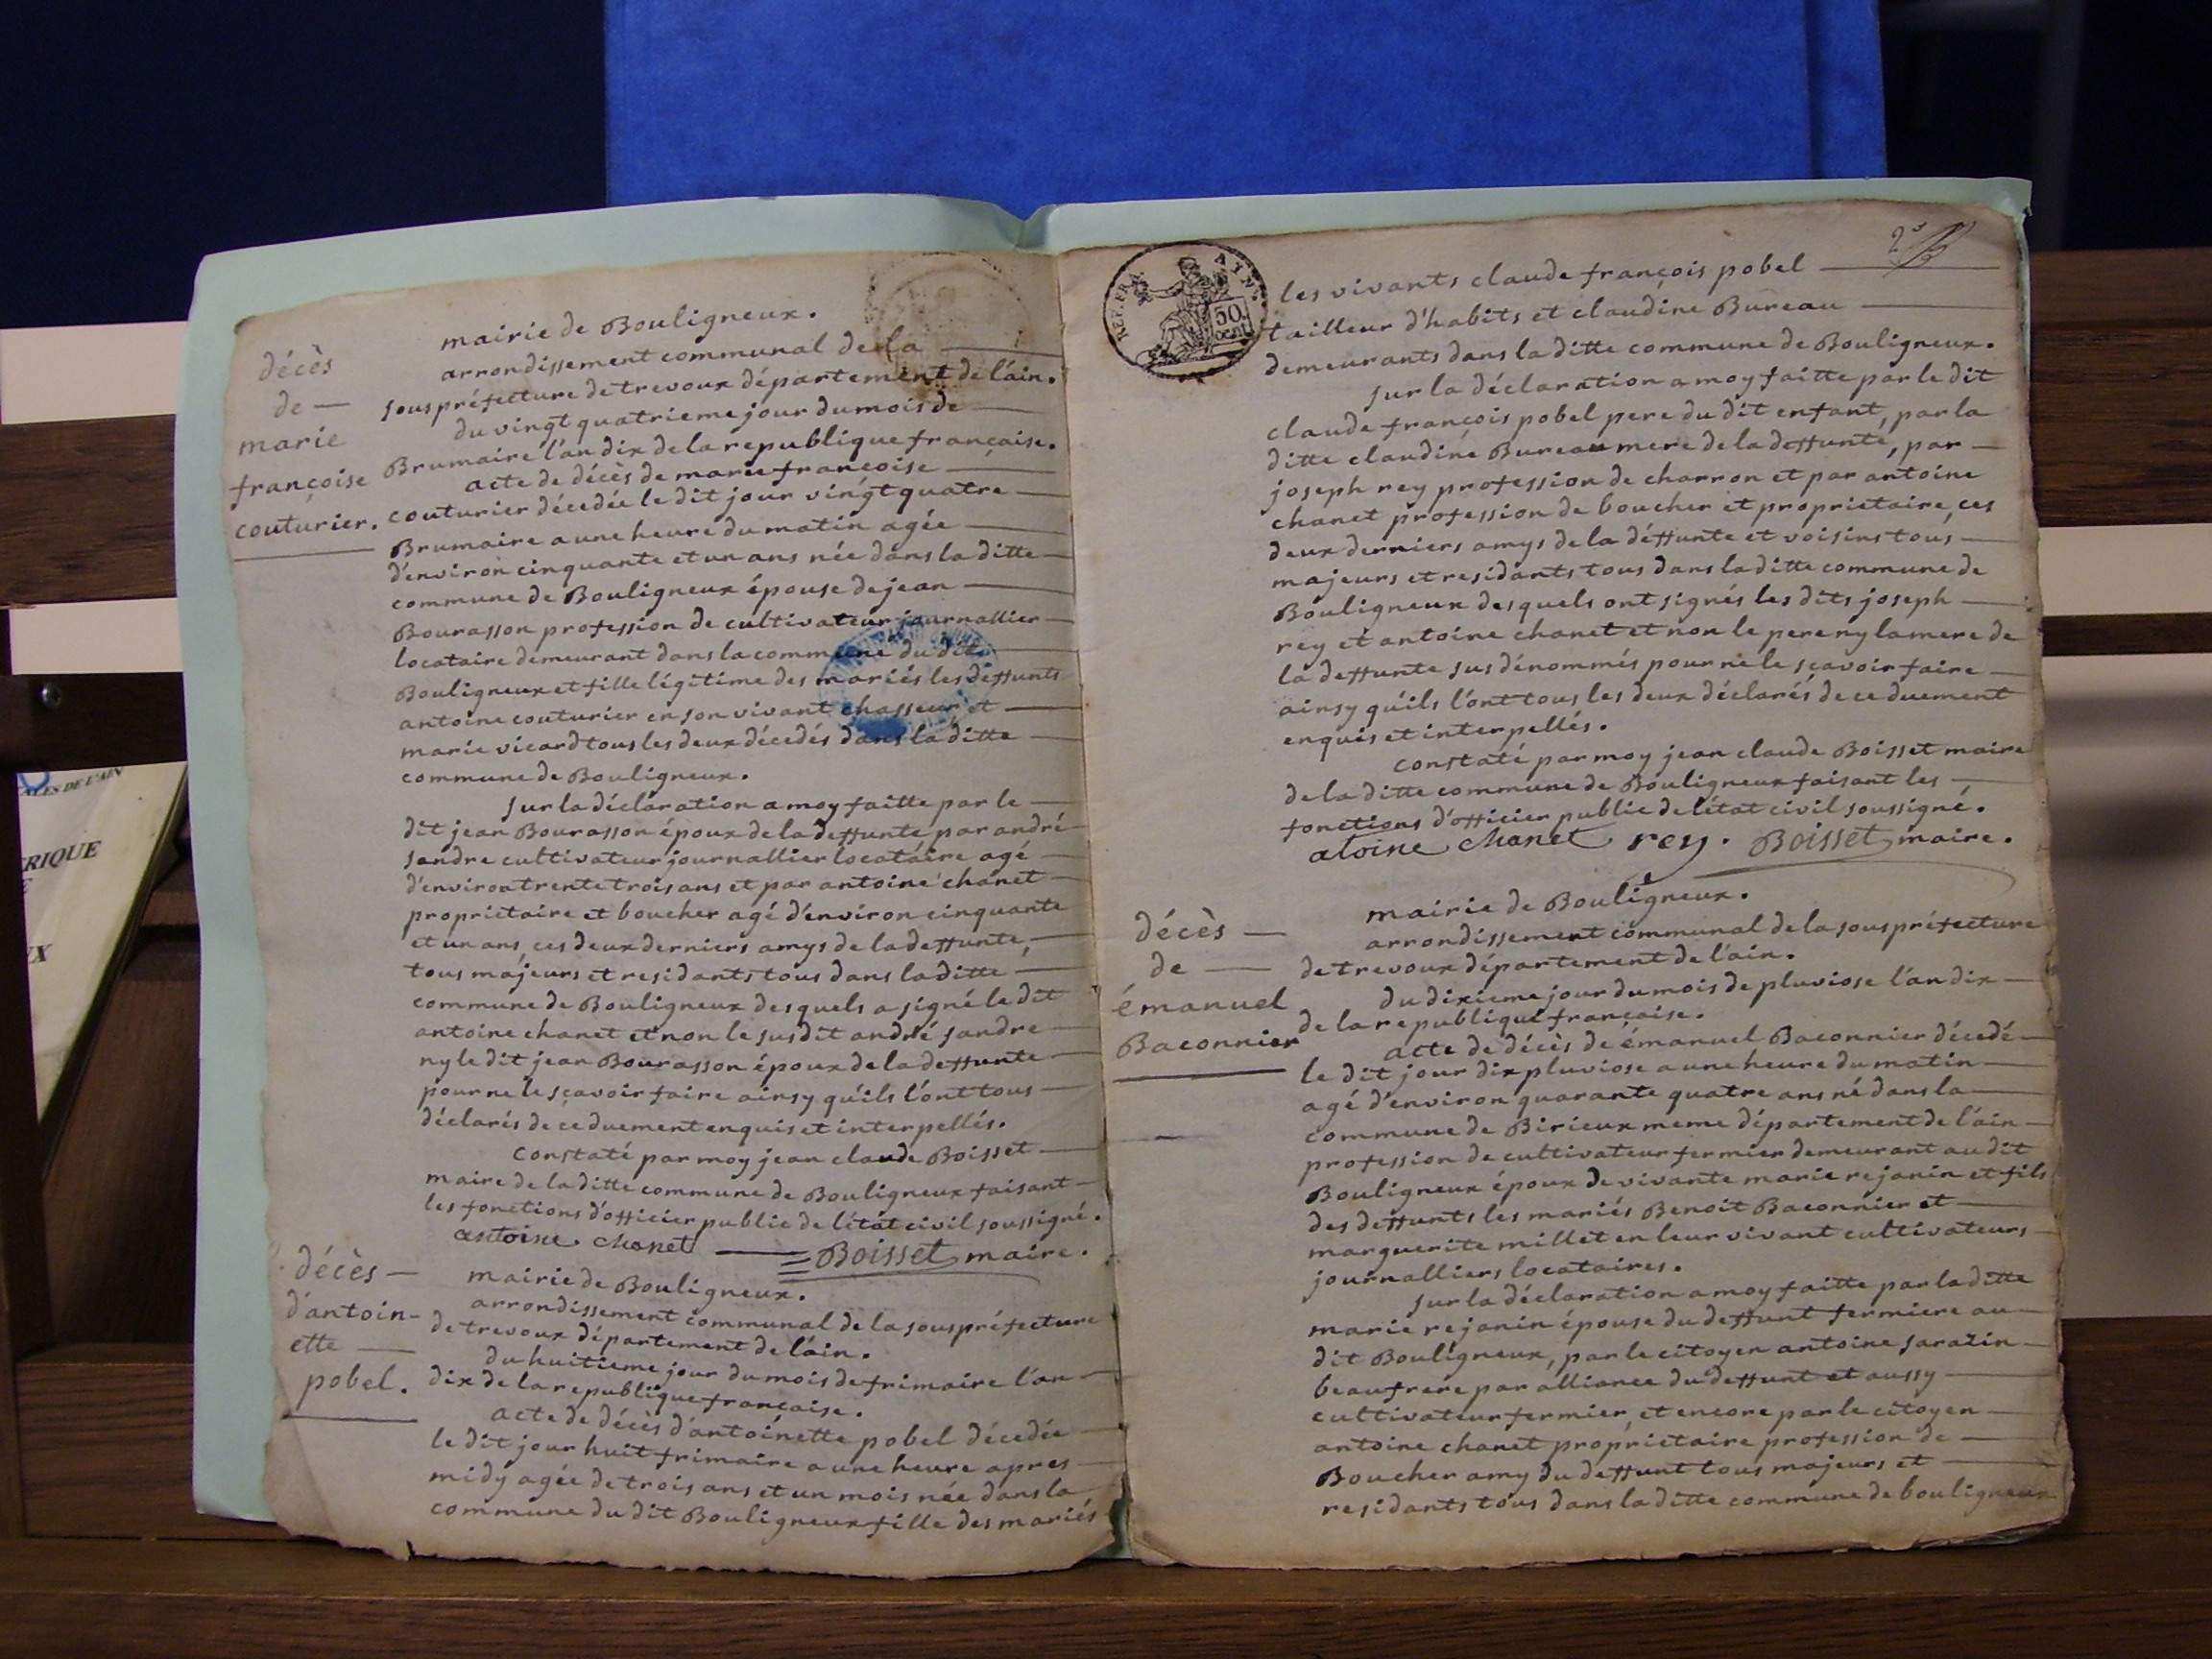 décès
de —
marie
françoise
couturier.
mairie de Bouligneux.
arrondissement communal de la
souspréfecture de trevoux département de l'ain.
du vingt quatrieme jour du mois de
Brumaire l'an dix de la republique française.
acte de décès de marie françoise
couturier décedée le dit jour vingt quatre
Brumaire a une heure du matin agée
d'environ cinquante et un ans née dans la ditte
commune de Bouligneux épouse de jean
Bourasson profession de cultivateur journallier
locataire demeurant dans la commune du dit
Bouligneux et fille légitime des mariés les deffunts
antoine couturier en son vivant chasseur et
marie vicard tous les deux décedés dans la ditte
commune de Bouligneux.
sur la déclaration a moy faitte par le
dit jean Bourasson époux de la deffunte par andré
sandre cultivateur journallier locataire agé
d'environ trente trois ans et par antoine chanet
proprietaire et boucher agé d'environ cinquante
et un ans, ces deux derniers amys de la deffunte,
tous majeurs et residants tous dans la ditte
commune de Bouligneux desquels a signé le dit
antoine chanet et non le susdit andré sandre
ny le dit jean Bourasson époux de la deffunte
pour ne le sçavoir faire ainsy qu'ils l'ont tous
déclarés de ce duement enquis et interpellés.
constaté par moy jean claude Boisset
maire de la ditte commune de Bouligneux faisant
les fonctions d'officier public de l'état civil soussigné.
antoine chanet Boisset maire.
décès —
d'antoin-
ette —
pobel.
mairie de Bouligneux.
arrondissement communal de la souspréfecture
de trevoux département de l'ain.
du huitieme jour du mois de frimaire l'an
dix de la republique française.
acte de décès d'antoinette pobel décedée
le dit jour huit frimaire a une heure apres
midy agée de trois ans et un mois née dans la
commune du dit Bouligneux fille des mariés
REP. FRA.
AYN.
50
cent
les vivants claude françois pobel
tailleur d'habits et claudine Bureau
demeurants dans la ditte commune de Bouligneux.
sur la déclaration a moy faitte par le dit
claude françois pobel pere du dit enfant, par la
ditte claudine Bureau mere de la deffunte, par
joseph rey profession de charron et par antoine
chanet profession de boucher et proprietaire, ces
deux derniers amys de la deffunte et voisins tous
majeurs et residants tous dans la ditte commune de
Bouligneux desquels ont signés les dits joseph
rey et antoine chanet et non le pere ny la mere de
la deffunte sus dénommés pour ne le sçavoir faire
ainsy qu'ils l'ont tous les deux déclarés de ce duement
enquis et interpellés.
constaté par moy jean claude Boisset maire
de la ditte commune de Bouligneux faisant les
fonctions d'officier public de l'état civil soussigné.
atoine chanet rey. Boisset maire.
décès —
de —
émanuel
Baconnier
mairie de Bouligneux.
arrondissement communal de la souspréfecture
de trevoux département de l'ain.
du dixieme jour du mois de pluviose l'an dix
de la republique française.
acte de décès de émanuel Baconnier décedé
le dit jour dix pluviose a une heure du matin
agé d'environ quarante quatre ans né dans la
commune de Birieux meme département de l'ain
profession de cultivateur fermier demeurant au dit
Bouligneux époux de vivante marie rejanin et fils
des deffunts les mariés Benoit Baconnier et
marguerite millet en leur vivant cultivateurs
journalliers locataires.
sur la déclaration a moy faitte par la ditte
marie rejanin épouse du deffunt fermiere au
dit Bouligneux, par le citoyen antoine sarazin
beaufrere par alliance du deffunt et aussy
cultivateur fermier, et encore par le citoyen
antoine chanet proprietaire profession de
Boucher amy du deffunt tous majeurs et
residants tous dans la ditte commune de bouligneux
RIQUE